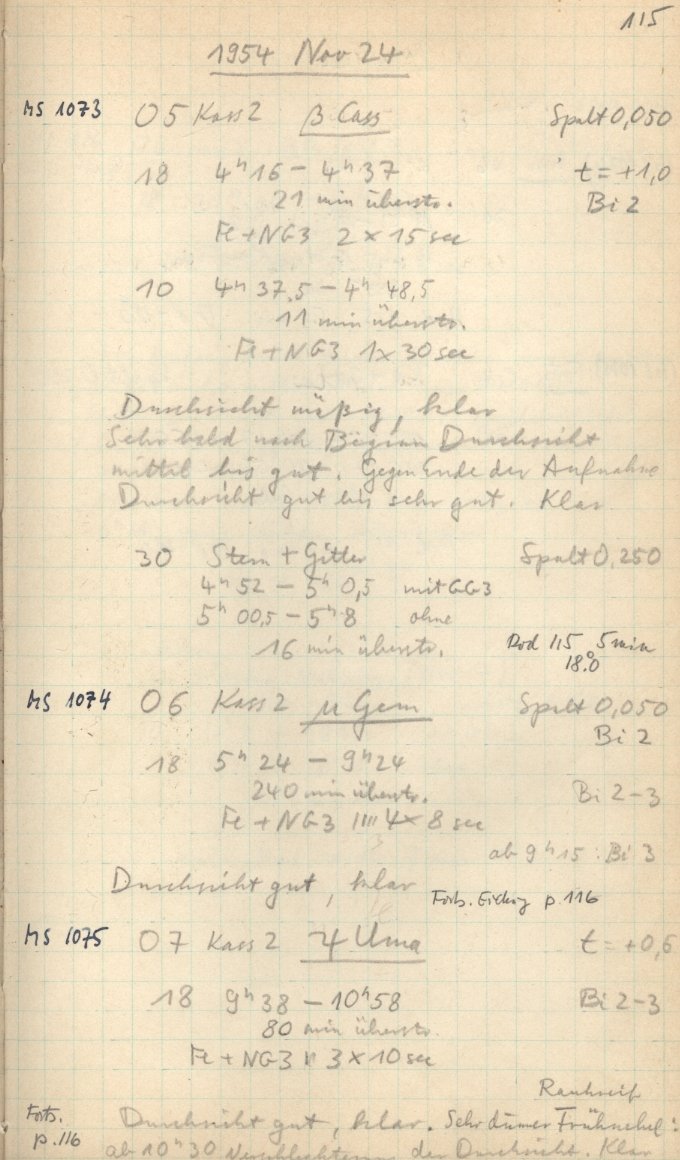 115
1954 Nov 24
MS 1073 05 Kass 2 β Cass Spalt 0,050
18 4ʰ16 – 4ʰ37 t = +1,0
21 min überstr. Bi 2
Fe + NG3 2 × 15 sec
10 4ʰ 37,5 – 4ʰ 48,5
11 min überstr.
Fe + NG3 1 × 30 sec
Durchsicht mäßig, klar
Sehr bald nach Beginn Durchsicht
mittel bis gut. Gegen Ende der Aufnahme
Durchsicht gut bis sehr gut. Klar
30 Stern + Gitter Spalt 0,250
4ʰ 52 – 5ʰ 0,5 mit GG3
5ʰ 00,5 – 5ʰ 8 ohne
16 min überstr. Rod 115 5 min
18.°0
MS 1074 06 Kass 2 μ Gem Spalt 0,050
Bi 2
18 5ʰ 24 – 9ʰ 24
240 min überstr. Bi 2–3
Fe + NG3 4 × 8 sec
ab 9ʰ 15 : Bi 3
Durchsicht gut, klar Forts. p. 116
MS 1075 07 Kass 2 ψ Uma t = +0,6
18 9ʰ 38 – 10ʰ 58 Bi 2–3
80 min überstr.
Fe + NG3 3 × 10 sec
Rauhreif
Forts. Durchsicht gut, klar. Sehr dünner Frühnebel :
p. 116 ab 10ʰ 30 Verschlechterung der Durchsicht. Klar